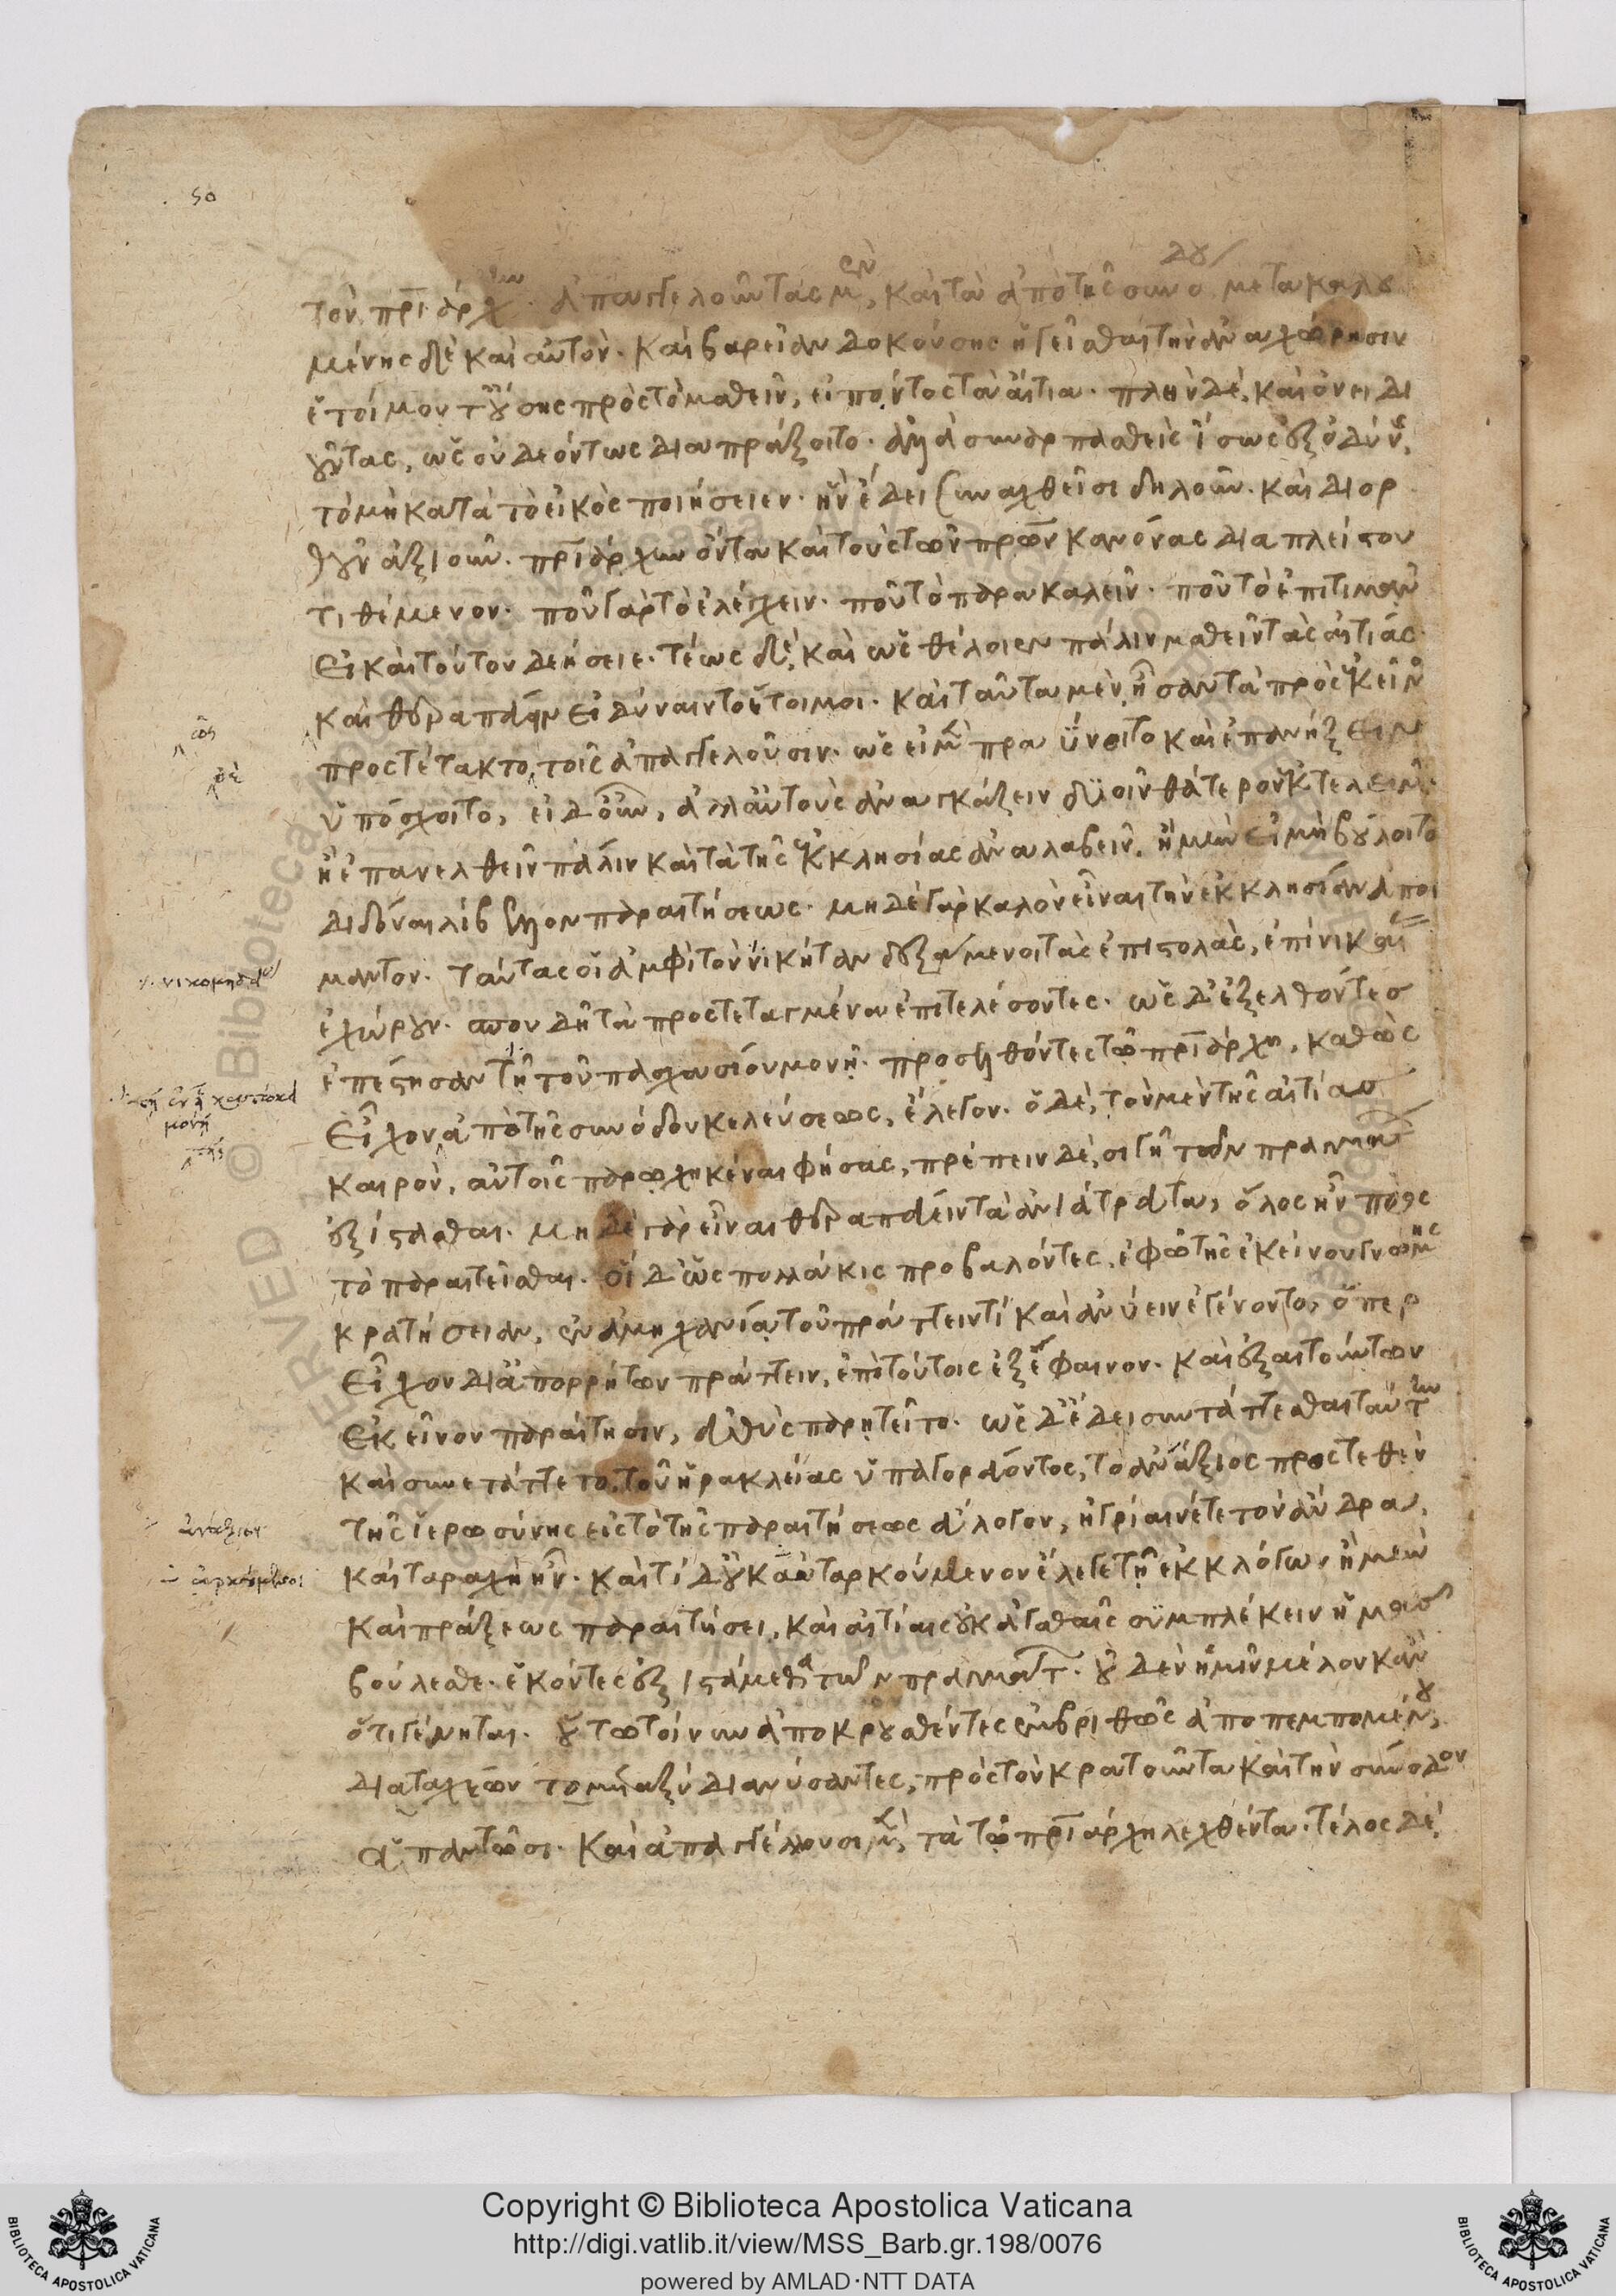 50
τὸν πριάρχην. ἀπαγγελοῦντας μὲν, καὶ τὰ ἀπὸ τῆς συνόδου μετακαλου
μένης δὲ καὶ αὐτὸν. καὶ βαρεῖαν δοκούσης ἡγεῖσθαι τὴν ἀναχώρησιν
ἑτοίμου τ' οὔσης πρὸς τὸ μαθεῖν, εἰπόντος τὰ αἴτια. πλὴν δὲ, καὶ ὀνειδι
οῦντας, ὡς οὐ δεόντως διαπράξοιτο. ἀλλὰ συναρπασθεὶς ἴσως ἐξ ὀδύνης,
τὸ μὴ κατὰ τὸ εἰκὸς ποιήσειεν. ἣν ἔδει συναχθεῖσι δηλοῦν. καὶ διορ
θοῦν ἀξιοῦν. πριάρχην ὄντα καὶ τοὺς τῶν πρων κανόνας διαπλείστου
τιθέμενον. ποῦ γὰρ τὸ ἐλέγχειν. ποῦ τὸ παρακαλεῖν. ποῦ τὸ ἐπιτιμᾶν
εἰ καὶ τούτου δεήσειε. τέως δὲ, καὶ ὡς θέλοιεν πάλιν μαθεῖν τὰς αἰτίας.
καὶ θεραπεύειν εἰ δύναιντο ἕτοιμοι. καὶ ταῦτα μὲν ἦσαν τὰ πρὸς ἐκεῖνον
προστέτακτο, τοῖς ἀπαγγελοῦσιν. ὡς εἰ μὲν πραΰνοιτο καὶ ἐπανήξειν
ὑπόσχοιτο, εἰ δ' οὖν, ἀλλ' αὐτοὺς ἀναγκάζειν δυοῖν θάτερον ἐκτελεῖν.
ἢ ἐπανελθεῖν πάλιν καὶ τὰ τῆς ἐκκλησίας ἀναλαβεῖν, ἢ μὴν εἰ μὴ βούλοιτο
διδόναι λίβελλον παραιτήσεως. μηδὲ γὰρ καλὸν εἶναι τὴν ἐκκλησίαν ἀποί
μαντον. ταύτας οἱ ἀμφὶ τὸν νικήταν δεξάμενοι τὰς ἐπιστολὰς, ἐπὶ νίκαιαν
ἐχώρουν. σπουδῇ τὰ προστεταγμένα ἐπιτελέσοντες. ὡς δ' ἐξελθόντες
ἐπέστησαν τῇ τοῦ πασχασίου μονῇ. προσελθόντες τῷ πριάρχῃ, καθὼς
εἶχον ἀπὸ τῆς συνόδου κελεύσεως, ἔλεγον. ὁ δὲ, τὸν μὲν τῆς αἰτίας
καιρὸν, αὐτοῖς παρῳχηκέναι φήσας, πρέπειν δὲ, σιγῇ τῶν πραγμάτων
ἐξίστασθαι. μηδὲ γὰρ εἶναι θεραπεύειν τὰ ἀνίατρευτα, ὅλος ἦν πρὸς
τὸ παραιτεῖσθαι. οἱ δ' ὡς πολλάκις προβαλόντες, ἐφ' ᾧ τῆς ἐκείνου γνώμης
κρατήσειαν, ἐν ἀμηχανίᾳ τοῦ πράττειν τί καὶ ἀνύειν ἐγένοντο, ὅπερ
εἶχον δι' ἀπορρήτων πράττειν, ἐπὶ τούτοις ἐξέφαινον. καὶ ἐξαιτούντων
ἐκεῖνον παραίτησιν, εὐθὺς παρῃτεῖτο. ὡς δ' ἔδει συντάττεσθαι ταύτην
καὶ συνετάττετο, τοῦ ἡρακλείας ὑπαγορεύοντος, τὸ ἀνάξιος προστεθὲν
τῆς ἱερωσύνης εἰς τὸ τῆς παραιτήσεως εὔλογον, ἠγρίαινέ τε τὸν ἄνδρα,
καὶ ταραχὴ ἦν. καὶ τί δ' οὐκ αὐταρκούμενον ἔλεγε τῇ ἐκ λόγων ἡμῶν
καὶ πράξεως παραιτήσει, καὶ αἰτίαις οὐκ ἀγαθαῖς συμπλέκειν ἡμᾶς
βούλεσθε. ἑκόντες ἐξιστάμεθα τῶν πραγμάτων. οὐδὲν ἡμῖν μέλον κἂν
ὅτι γένηται. οὕτω τοίνυν ἀποκρουσθέντες ἐμβριθῶς ἀποπεμπομένου,
διαταχέων τὸ μεταξὺ διανύσαντες, πρὸς τὸν κρατοῦντα καὶ τὴν σύνοδον
ἀπαντῶσι. καὶ ἀπαγγέλλουσι μὲν, τὰ τῷ πριάρχῃ λεχθέντα. τέλος δὲ
Copyright © Biblioteca Apostolica Vaticana
http://digi.vatlib.it/view/MSS_Barb.gr.198/0076
powered by AMLAD·NTT DATA
BIBLIOTECA APOSTOLICA VATICANA
BIBLIOTECA APOSTOLICA VATICANA